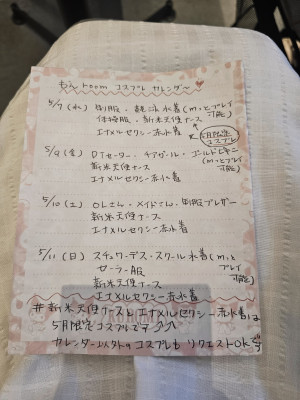 もんroom コスプレ カレンダー♡
5/7(水) 制服・競泳水着(m、とプレイ可能)
体操服・新米天使ナース
エナメルセクシー赤水着
5月限定コスプレ
5/9(金) DTセーター・チアガール・ゴールドビキニ
(m、とプレイ可能)
新米天使ナース
エナメルセクシー赤水着
5/10(土) OLさん・メイドさん・制服ブレザー
新米天使ナース
エナメルセクシー赤水着
5/11(日) スチュワーデス・スクール水着(m、とプレイ可能)
セーラー服
新米天使ナース
エナメルセクシー赤水着
#新米天使ナースとエナメルセクシー赤水着は
5月限定コスプレです
カレンダー以外のコスプレも リクエストOKです